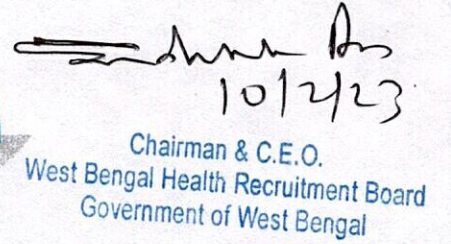 10/2/23
Chairman & C.E.O.
West Bengal Health Recruitment Board
Government of West Bengal